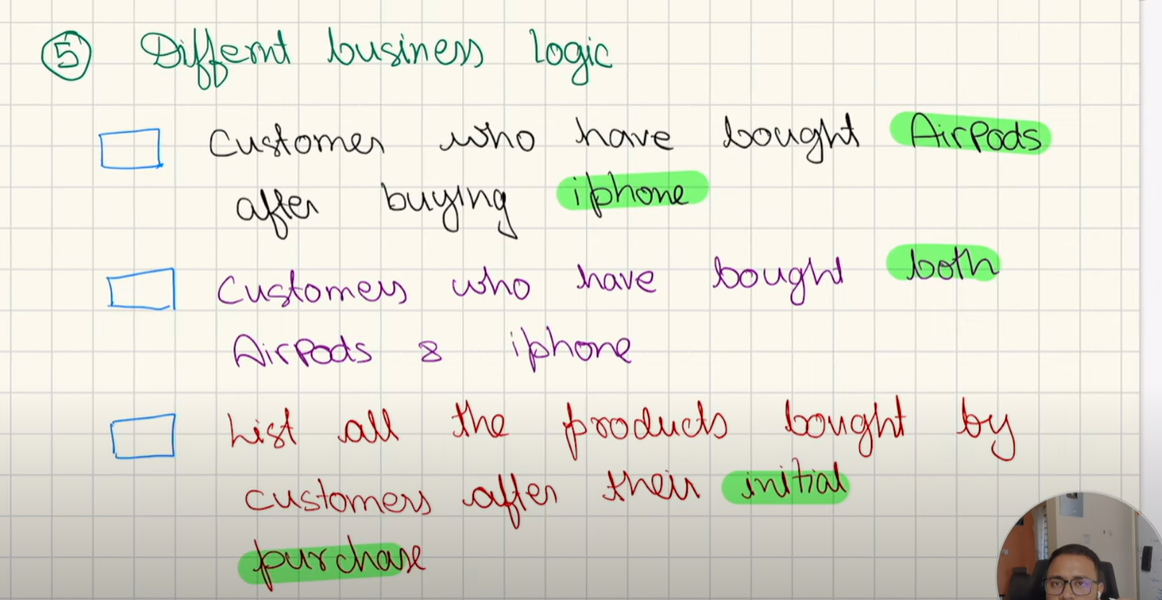 5 Differnt business logic
Customer who have bought AirPods
after buying iphone
Customers who have bought both
AirPods & iphone
List all the products bought by
customers after their initial
purchase